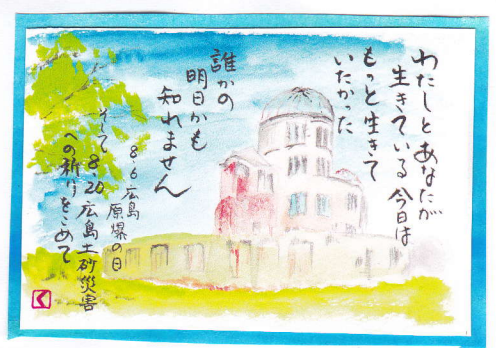 わたしとあなたが
生きている今日は
もっと生きて
いたかった
誰かの
明日かも
知れません
8.6広島
原爆の日
そして8.20広島土砂災害
への祈りをこめて
く